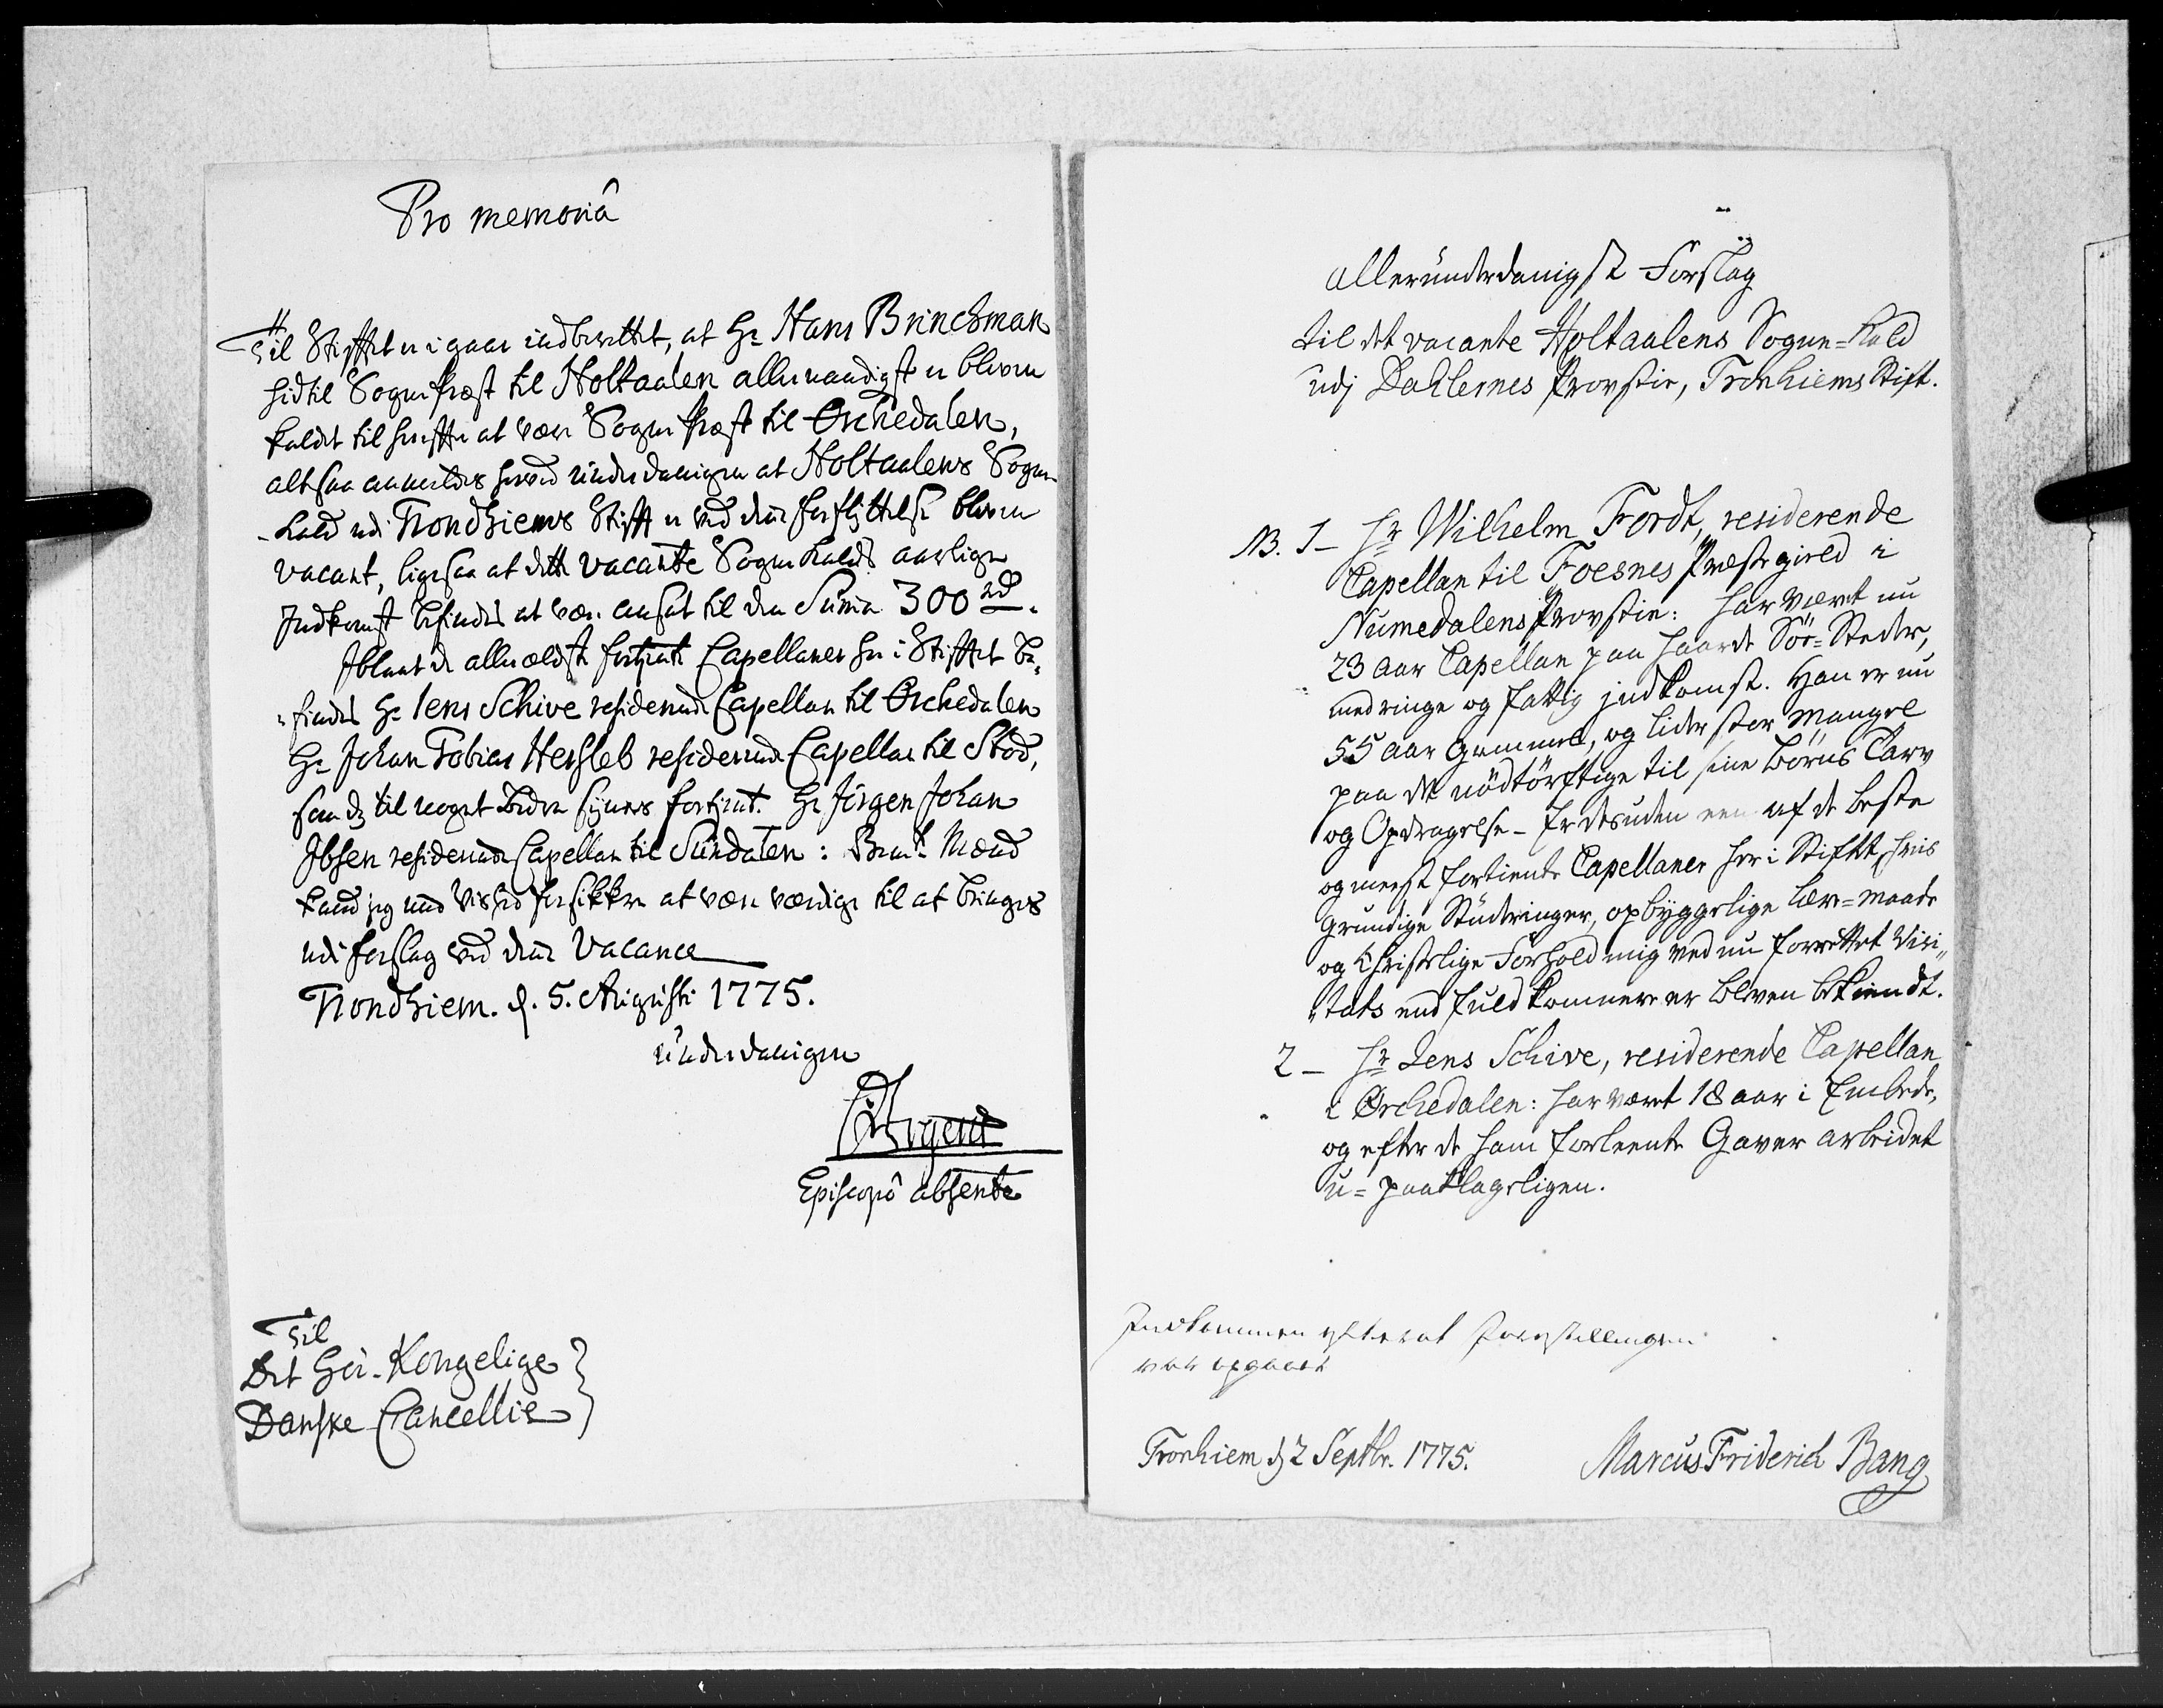 Pro memoriâ
Til Stifftet er i gaar indberettet, at Hr Hans Brinchman
hidtil Sogne Præst til Holtaalen allernaadigst er bleven
kaldet til herefter at være Sogne Præst til Orchedalen,
altsaa anmeldes herved underdanigen at Holtaalens Sogne-
-kald udi Trondhiems Stifft er ved denne forflyttelse bleven
vacant, ligesaa at dette vacante Sogne Kalds aarlige
Indkomst befindes at være ansat til den Suma 300 rd.
Iblant de allerældste fortiente Capellaner her i Stifftet be-
-findes Hr Iens Schive residerende Capellan til Orchedalen
Hr Johan Tobias Hersleb residerende Capellan til Stod,
som og til noget bedre synes fortient. Hr Jörgen Johan
Ibsen residerende Capellan til Sundalen: Bemte Mænd
kand jeg med Vished forsikkre at være værdige til at bringes
udi forslag ved denne Vacance
Trondhiem. d. 5. Augusti 1775.
underdanigen
Episcopô absente
Til
Det Höi-Kongelige
Danske Cancellie
Allerunderdanigst Forslag
til det vacante Holtaalens Sogne-Kald
udj Dahlernes Provstie, Tronhiems Stift.
NB. 1- Hr Wilhelm Fordt, residerende
Capellan til Foesnes Præstegield i
Numedalens Provstie: har været nu
23 aar Capellan paa haarde Söe-Steder,
med ringe og fattig indkomst. Han er nu
55 aar gammel, og lider stor Mangel
paa det nödtörftige til sine Börns Tarv
og Opdragelse - Er desuden een af de beste
og meest fortiente Capellaner her i Stiftet, hvis
grundige Studeringer, opbyggelige Lære-maade
og Christelige Forhold mig ved nu forrettet Visi-
-tats end fuldkomnere er bleven bekiendt.
2- Hr Jens Schive, residerende Capellan
i Ørchedalen: har været 18 aar i Embede,
og efter de ham forleente Gaver arbeidet
u-paaklageligen.
Indkommen efterat Forestillingen
var opgaaet
Tronhiem d 2 Septbr. 1775.
Marcus Friderich Bang